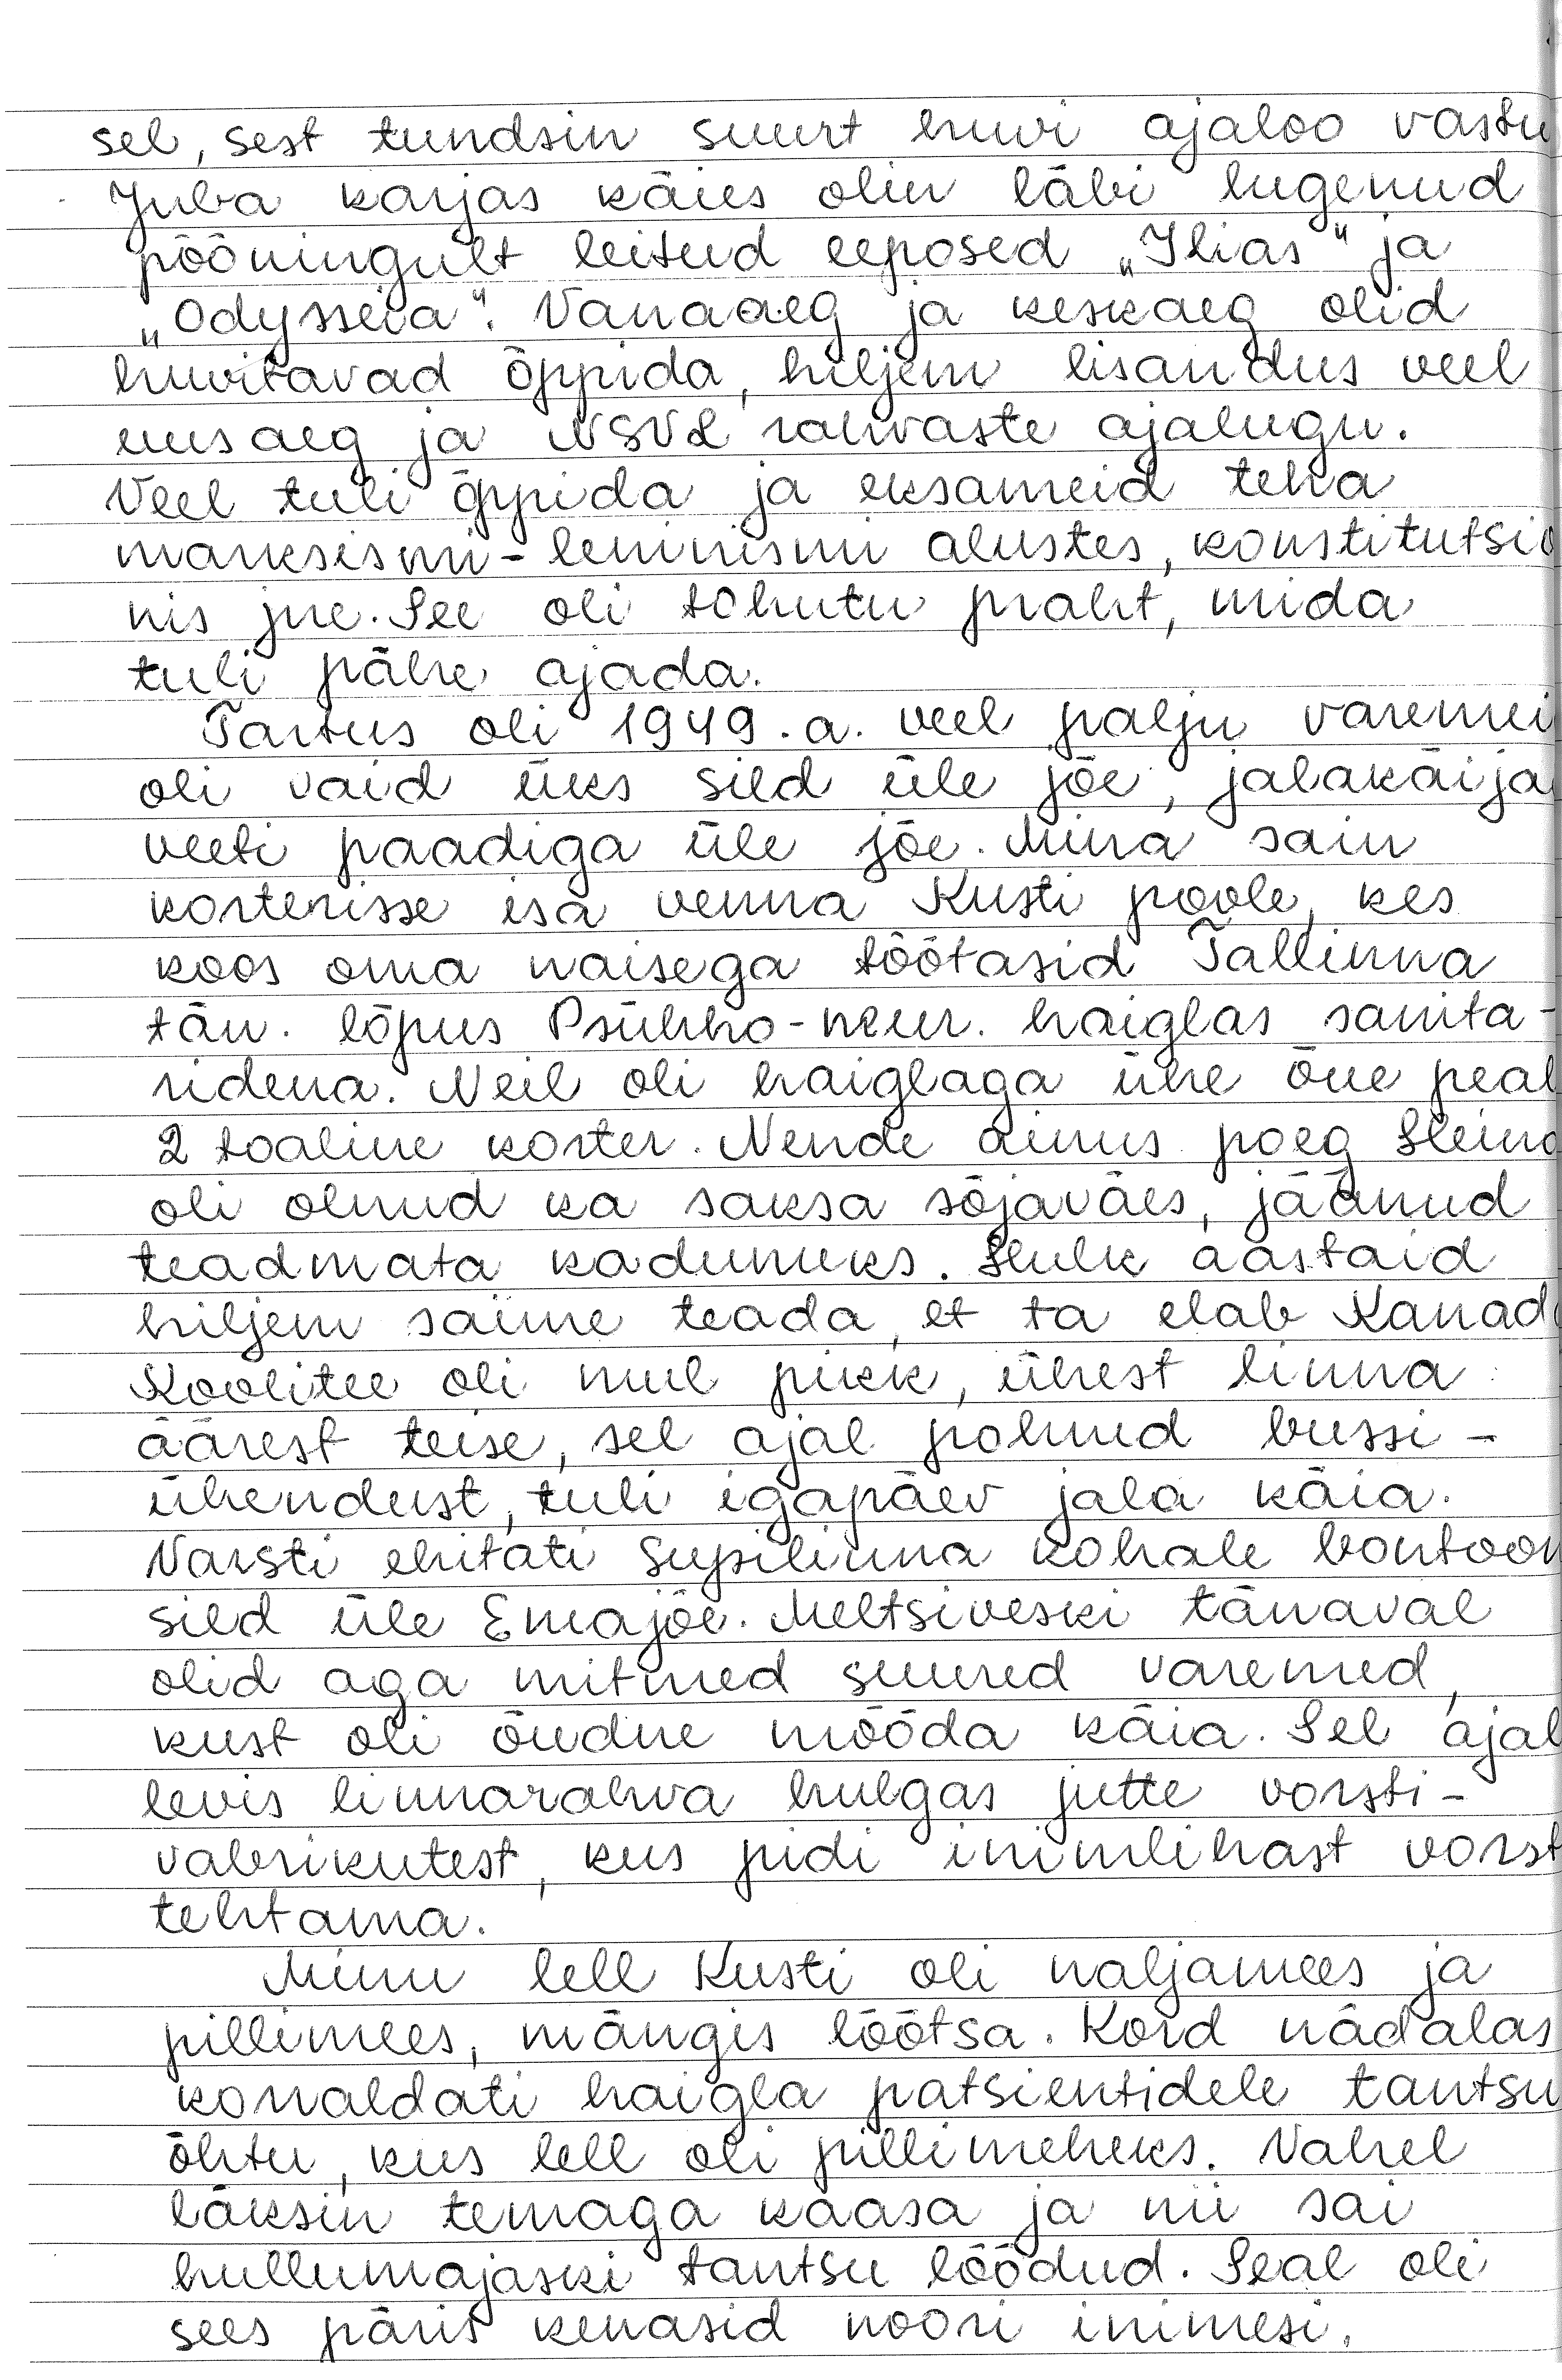 sel, sest tundsin suurt huvi ajaloo vastu
Juba karjas käies olin läbi lugenud
pööningult leitud eeposed „Ilias" ja
„Odysseia". Vanaaeg ja keskaeg olid
huvitavad õppida, hiljem lisandus veel
uusaeg ja NSVL rahvaste ajalugu.
Veel tuli õppida ja eksameid teha
marksismi-leninismi alustes, konstitutsio
nis jne. See oli tohutu praht, mida
tuli pähe ajada.
Tartus oli 1949.a. veel palju varemei
oli vaid üks sild üle jõe, jalakäija
veeti paadiga üle jõe. Mina sain
korterisse isa venna Kusti poole, kes
koos oma naisega töötasid Tallinna
tän. lõpus Psühho-neur. haiglas sanita-
ridena. Neil oli haiglaga ühe õue peal
2 toaline korter. Nende ainus poeg Heino
oli olnud ka saksa sõjaväes, jäänud
teadmata kadunuks. Hulk aastaid
hiljem saime teada, et ta elab Kanada
Koolitee oli mul pikk, ühest linna
äärest teise, sel ajal polnud bussi-
ühendust, tuli igapäev jala käia.
Varsti ehitati Supilinna kohale bontoon
sild üle Emajõe. Meltsiveski tänaval
olid aga mitmed suured varemed,
kust oli õudne mööda käia. Sel ajal
levis linnarahva hulgas jutte vorsti-
vabrikutest, kus pidi inimlihast vorst
tehtama.
Minu lell Kusti oli naljamees ja
pillimees, mängis lõõtsa. Kord nädalas
korraldati haigla patsientidele tantsu
õhtu, kus lell oli pillimeheks. Vahel
läksin temaga kaasa ja nii sai
hullumajaski tantsu löödud. Seal oli
sees päris kenasid noori inimesi.